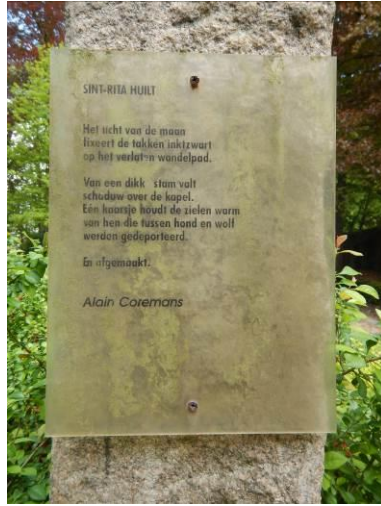 SINT-RITA HUILT
Het licht van de maan
fixeert de takken inktzwart
op het verlaten wandelpad.
Van een dikk stam valt
schaduw over de kapel.
Eén kaarsje houdt de zielen warm
van hen die tussen hond en wolf
werden gedeporteerd.
En afgemaakt.
Alain Coremans